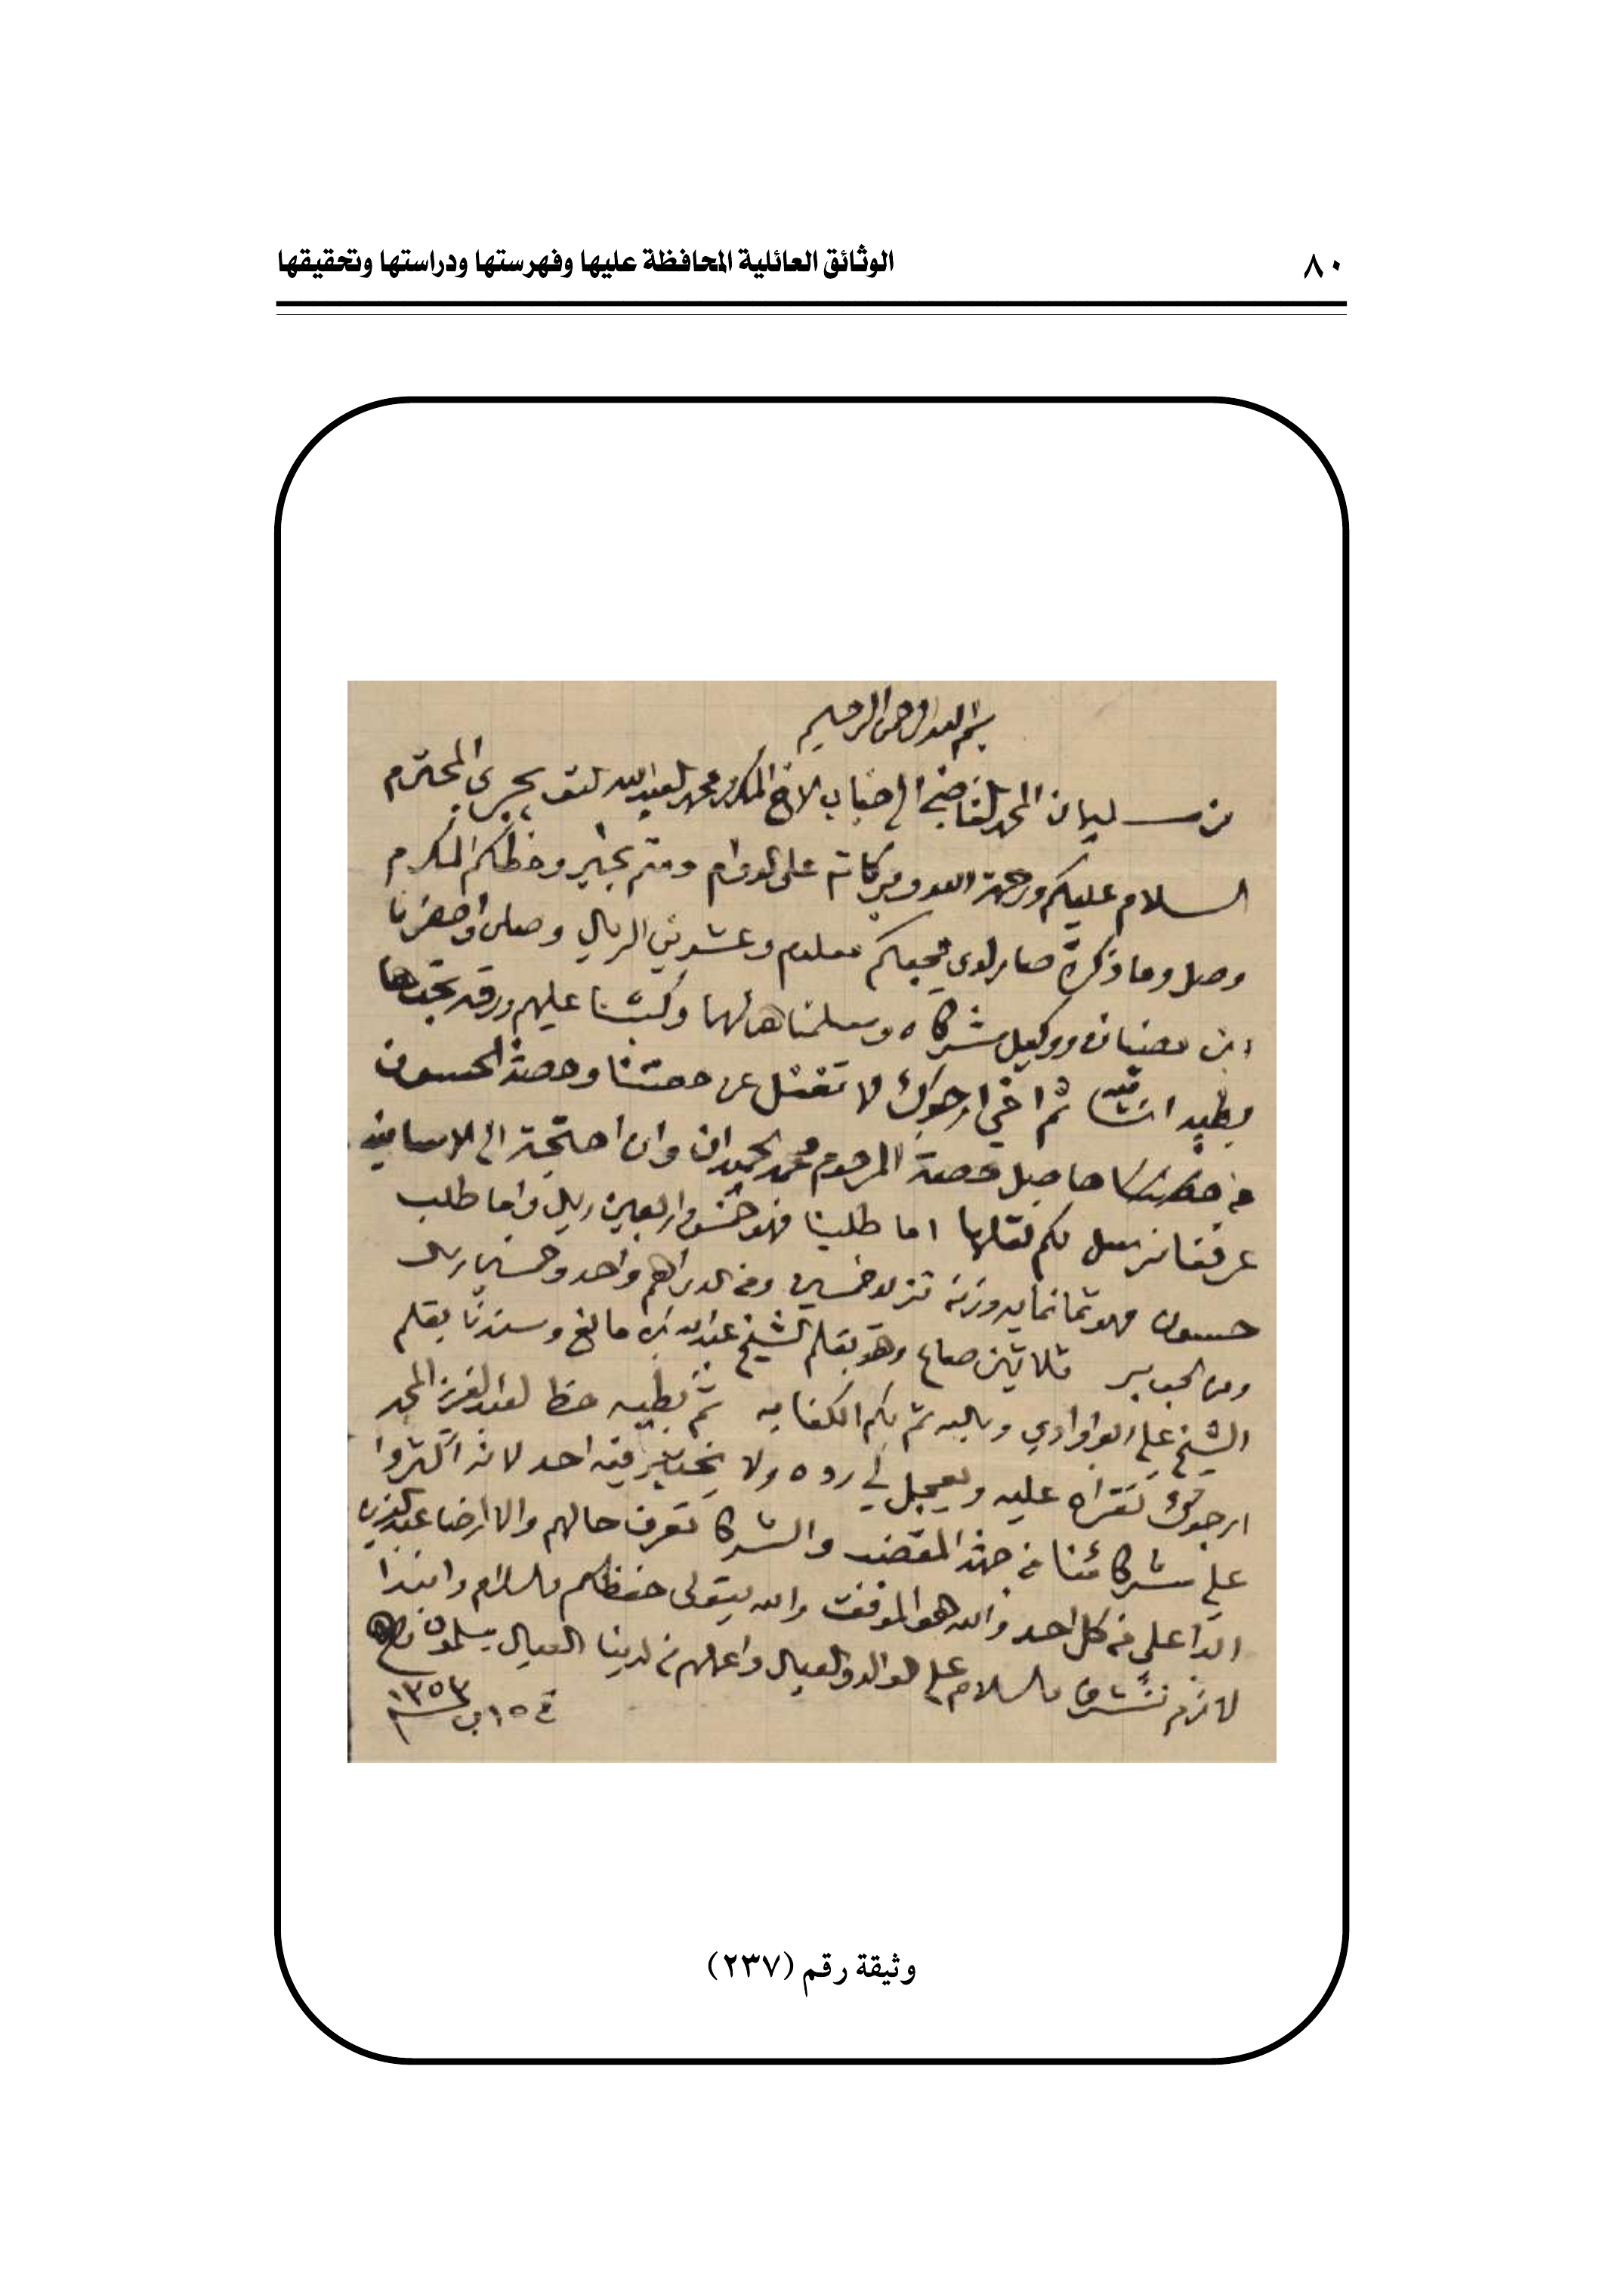 ٨٠
الوثائق العائلية المحافظة عليها وفهرستها ودراستها وتحقيقها
بسم الله الرحمن الرحيم
من سليمان المحمد القاضي الى جناب الاخ المكرم محمد العبدالله المحترم
السلام عليكم ورحمة الله وبركاته على الدوام ودمتم بخير وخطكم المكرم
وصل وما ذكرة صار لدى محبكم معلوم وعشرين الريال وصلن واحضرنا
ووكيل شركاه وسلمناهن لهما وكتبنا عليهم ورقه تجدها
بطيه ثم اخي ارجوك لا تغفل عن حصتنا وحصة الحسون
من حاصل حصة المرحوم محمد الحميدان وان احتجة الى الاسانيد
عرفنا نرسل لكم نقلها اما طلبنا فهو خمس واربعين ريال واما طلب
حسون فهو ثمانمايه وزنه تزود خمسين ومن الدراهم واحد وخمسين ريال
ومن الحب ثلاثين صاع وهو بقلم الشيخ عبدالله ال مانع وسندنا بقلم
الشيخ علي ابو وادي وبالله ثم بكم الكفايه ثم بطيه خط لعبدالعزيز المحمد
ارجوك تقراه عليه ويعجل لي رده ولا فيه احد لانه اكثروا
على شركائنا من جهة والشركا تعرف حالهم والا ارضا عبدالعزيز
على من كل احد والله هو الموفق والله يتولى حفظكم والسلام وابدا
لازم نتشرف والسلام على الوالد والعيال واعلمهم من لدينا العيال يسلمون
في ١٥ ب ١٣٥٣
وثيقة رقم (٢٣٧)